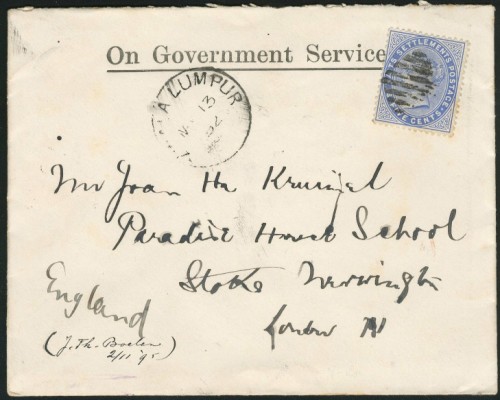 On Government Service
S SETTLEMENTS POSTAGE
CENTS
A LUMPUR
13
92
Mr Joan Hu
Paradise House School
Stoke Newington
London N
England
(J. Th. Boelen
2/11 '95)